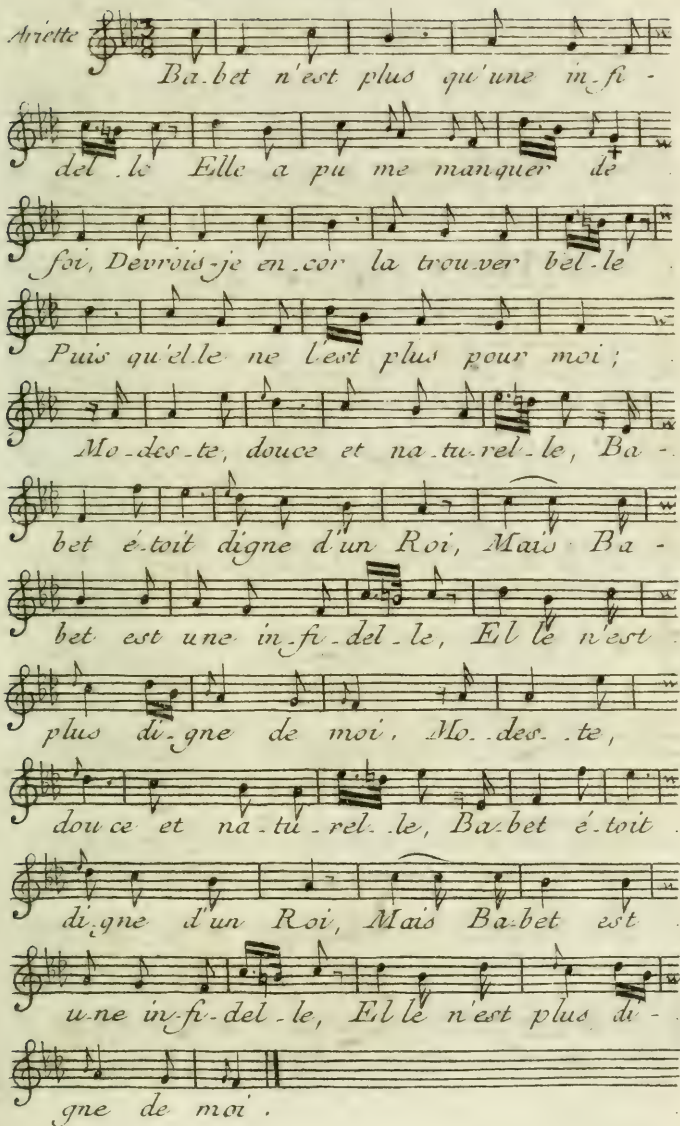 Ariette
Ba-bet n'est plus qu'une in-fi-
del-le Elle a pu me manquer de
foi, Devrois-je en-cor la trou-ver bel-le
Puis qu'el-le ne l'est plus pour moi;
Mo-des-te, douce et na-tu-rel-le, Ba-
bet é-toit digne d'un Roi, Mais Ba-
bet est une in-fi-del-le, El le n'est
plus di-gne de moi. Mo-des-te,
dou ce et na-tu-rel-le, Ba-bet é-toit
di-gne d'un Roi, Mais Ba-bet est
u-ne in-fi-del-le, El le n'est plus di-
gne de moi.